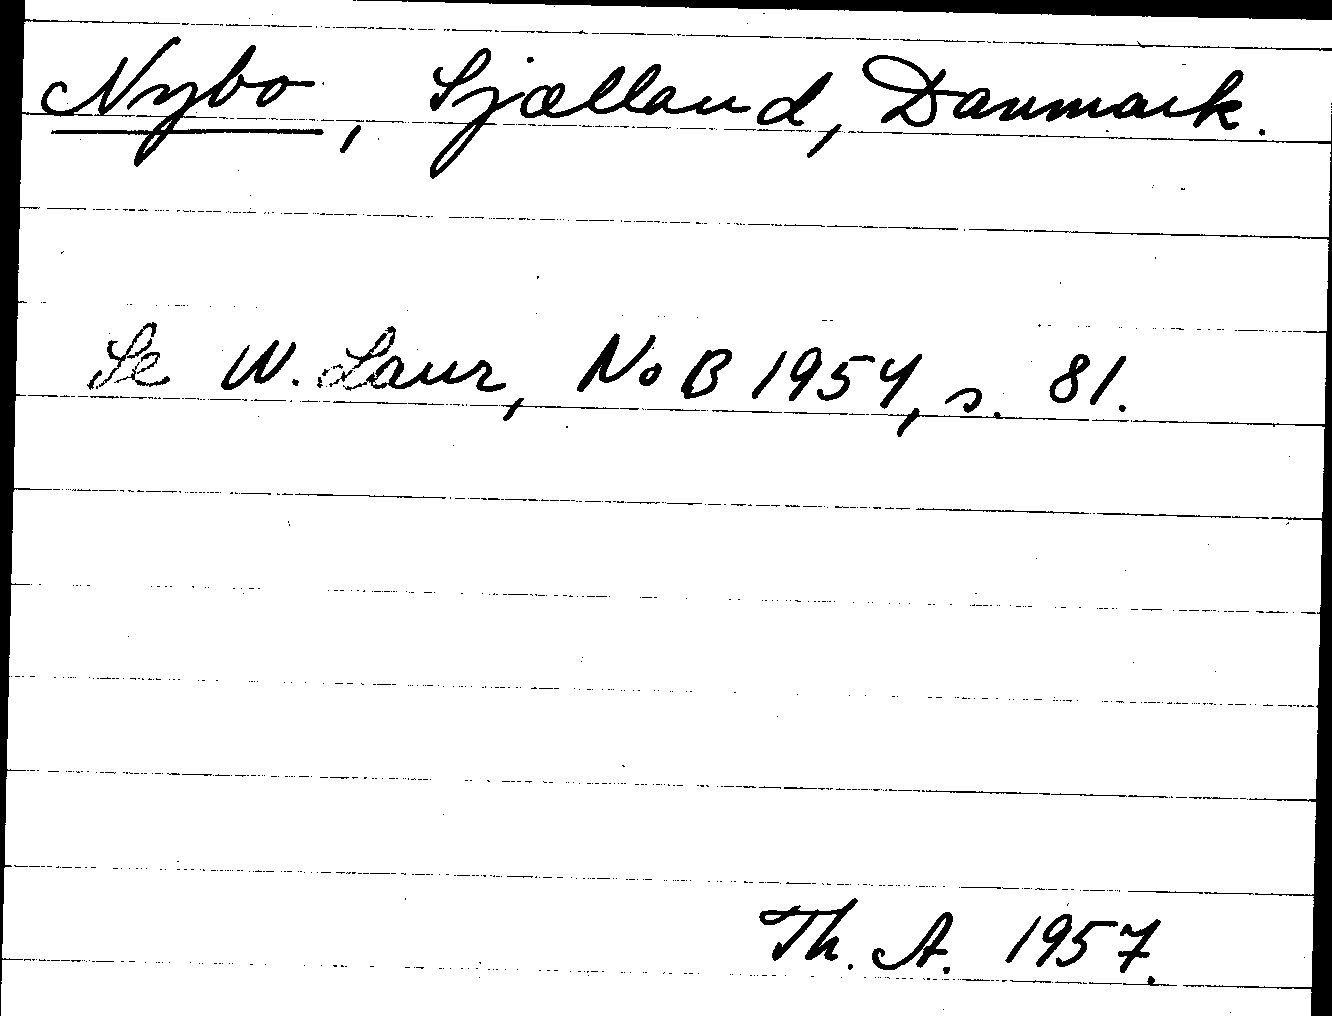 Nybo, Sjælland, Danmark.
Se W. Laur, NoB 1954, s. 81.
Th. A. 1957.